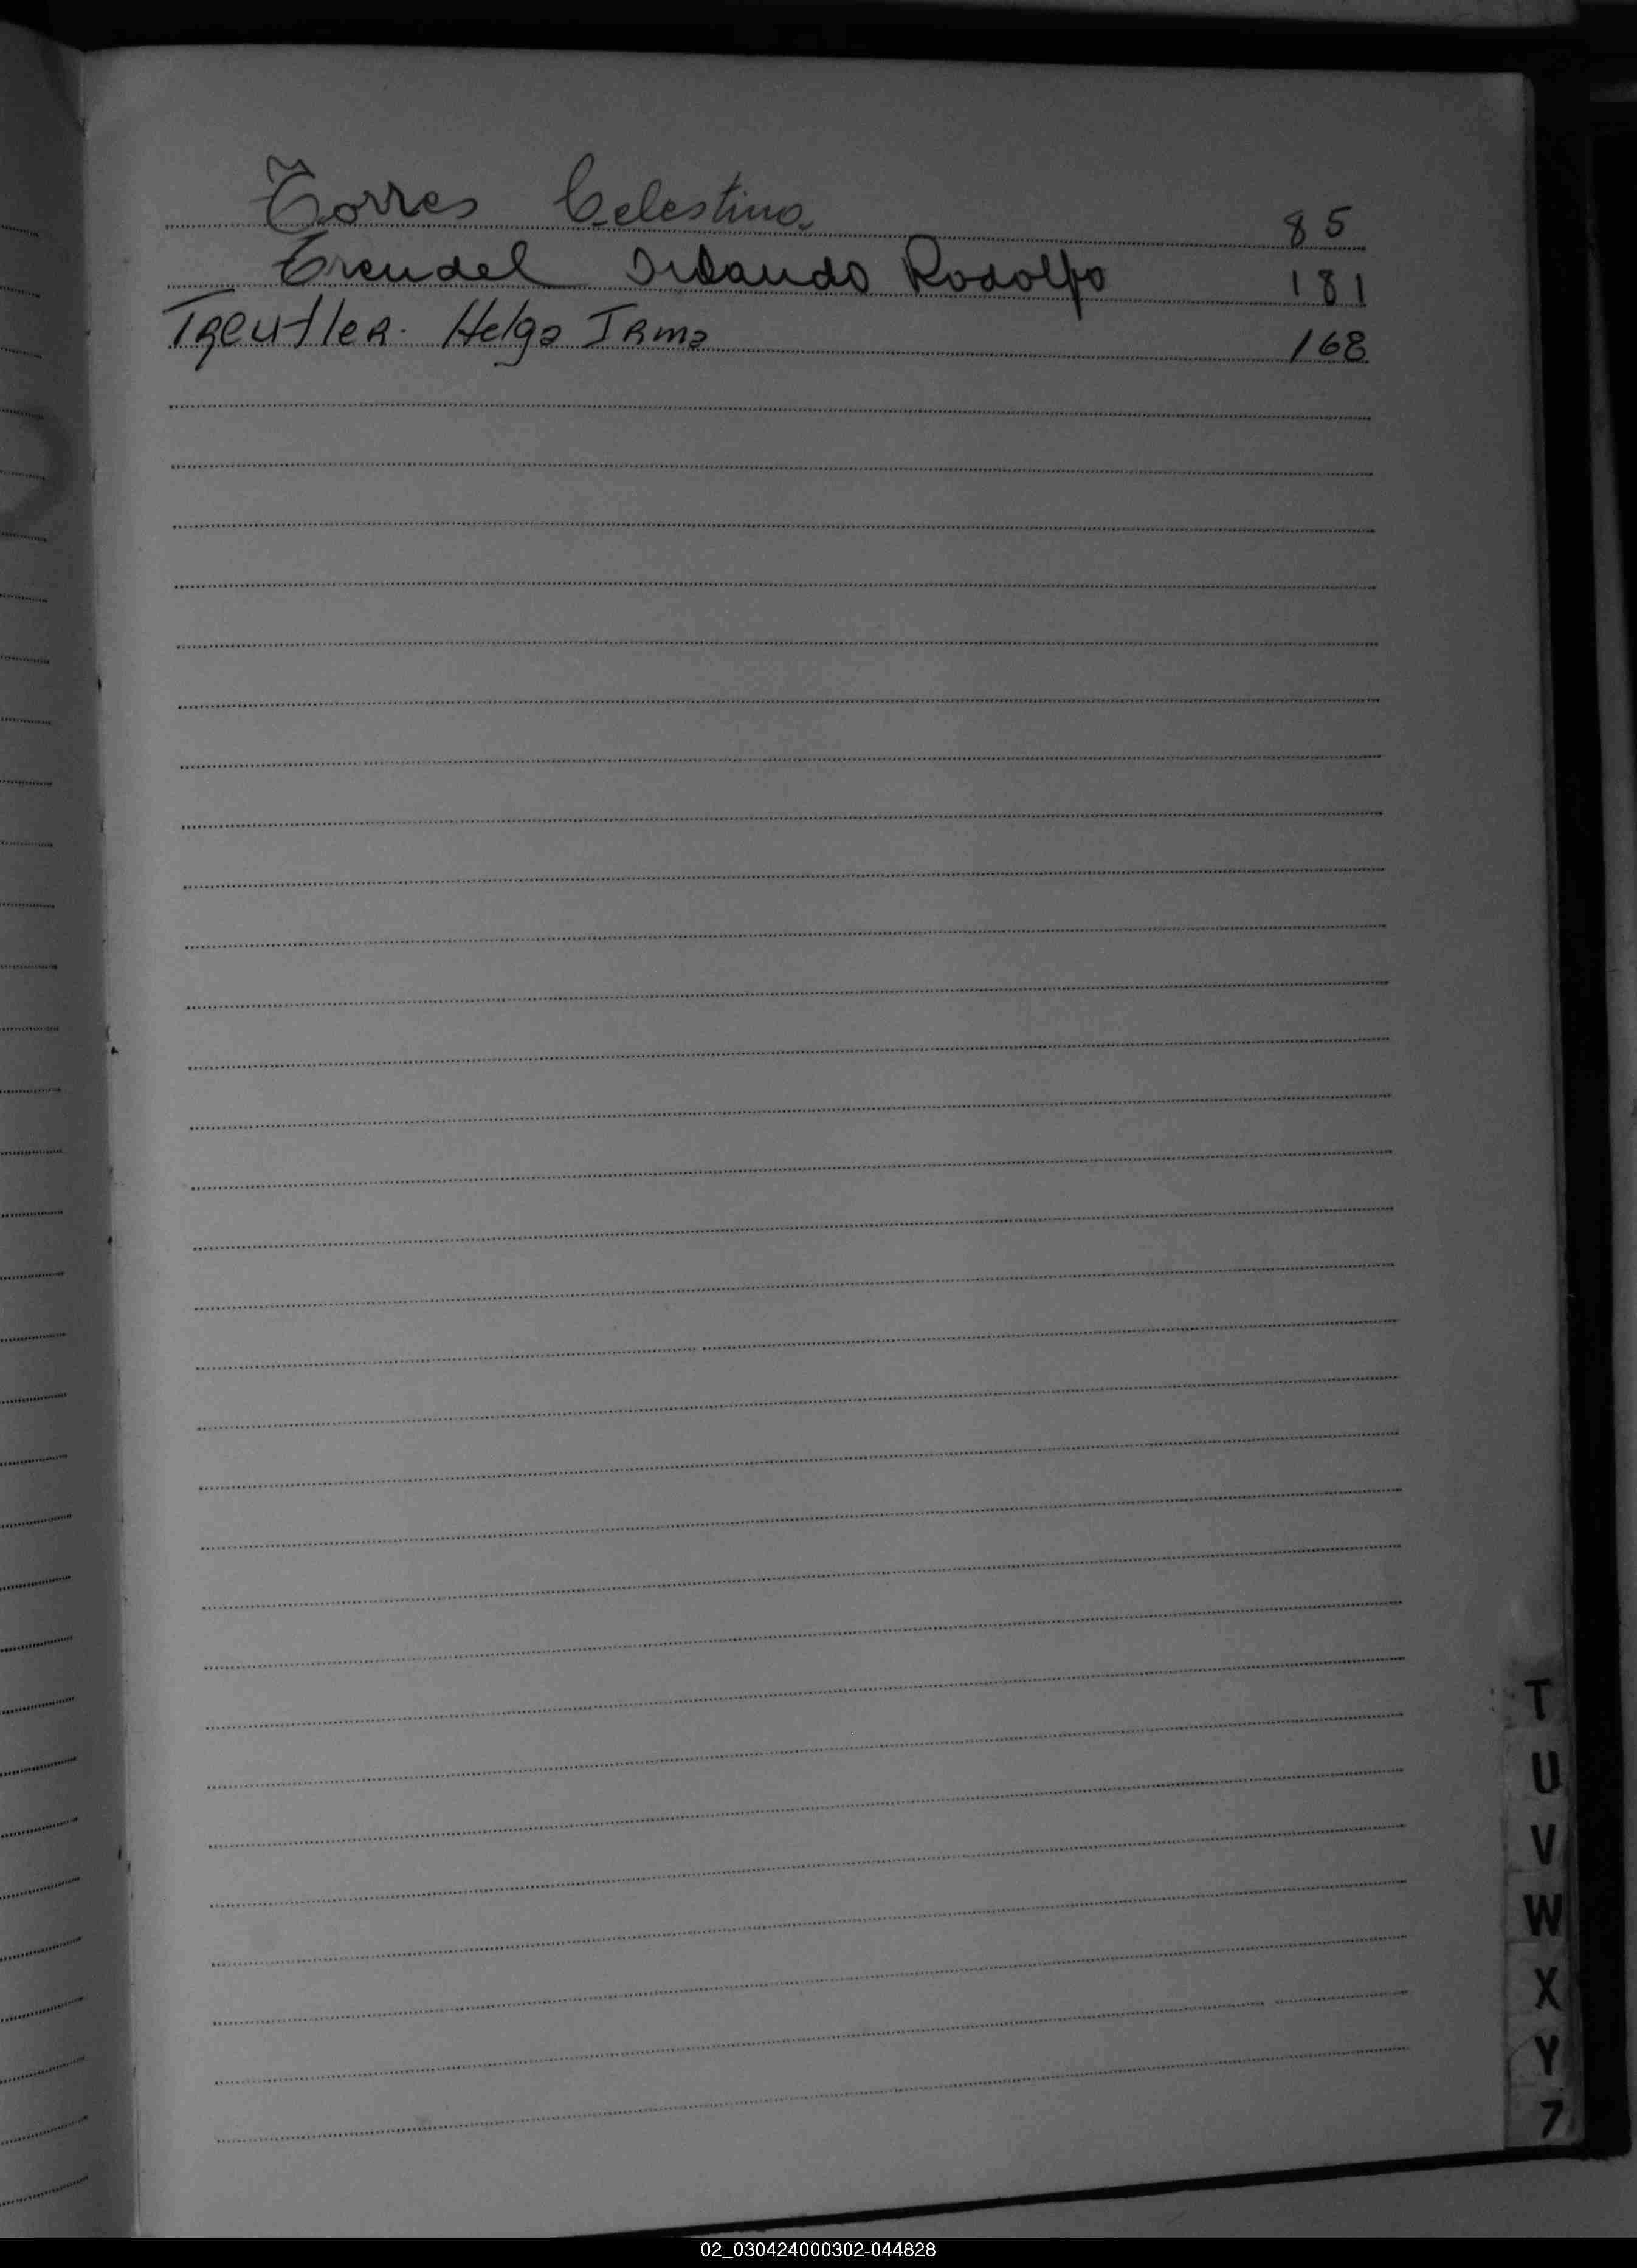 Torres Celestina 85
Trendel Orlando Rodolfo 181
Treutler. Helga Irma 168
T
U
V
W
X
Y
Z
02_030424000302-044828